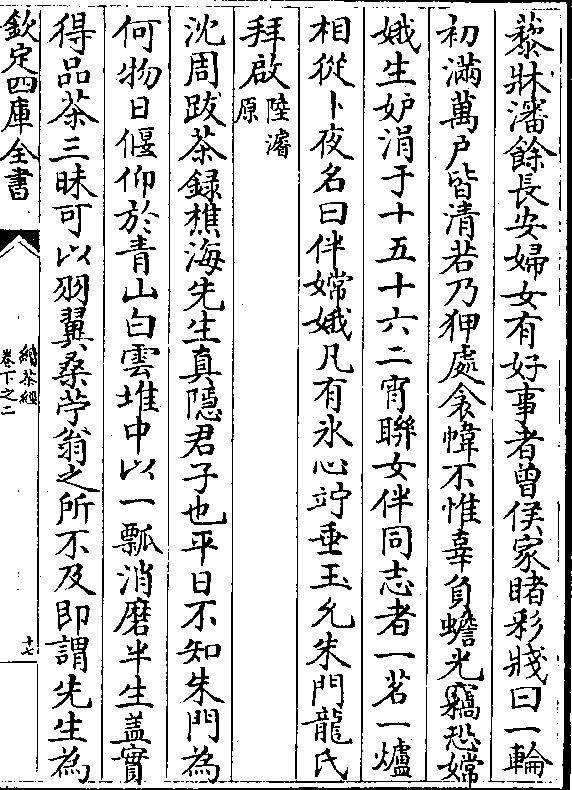 藜牀瀋餘長安婦女有好事者曾侯家睹彩牋曰一輪
初滿萬户皆清若乃狎處衾幃不惟辜負蟾光竊恐嫦
娥生妒涓于十五十六二宵聯女伴同志者一茗一爐
相從卜夜名曰伴嫦娥凡有氷心竚垂玉允朱門龍氏
拜啟陸濬原
沈周跋茶録樵海先生真隱君子也平日不知朱門為
何物日偃仰於青山白雲堆中以一瓢消磨半生蓋實
得品茶三昧可以羽翼桑苧翁之所不及即謂先生為
欽定四庫全書
續茶經
卷下之二
十七